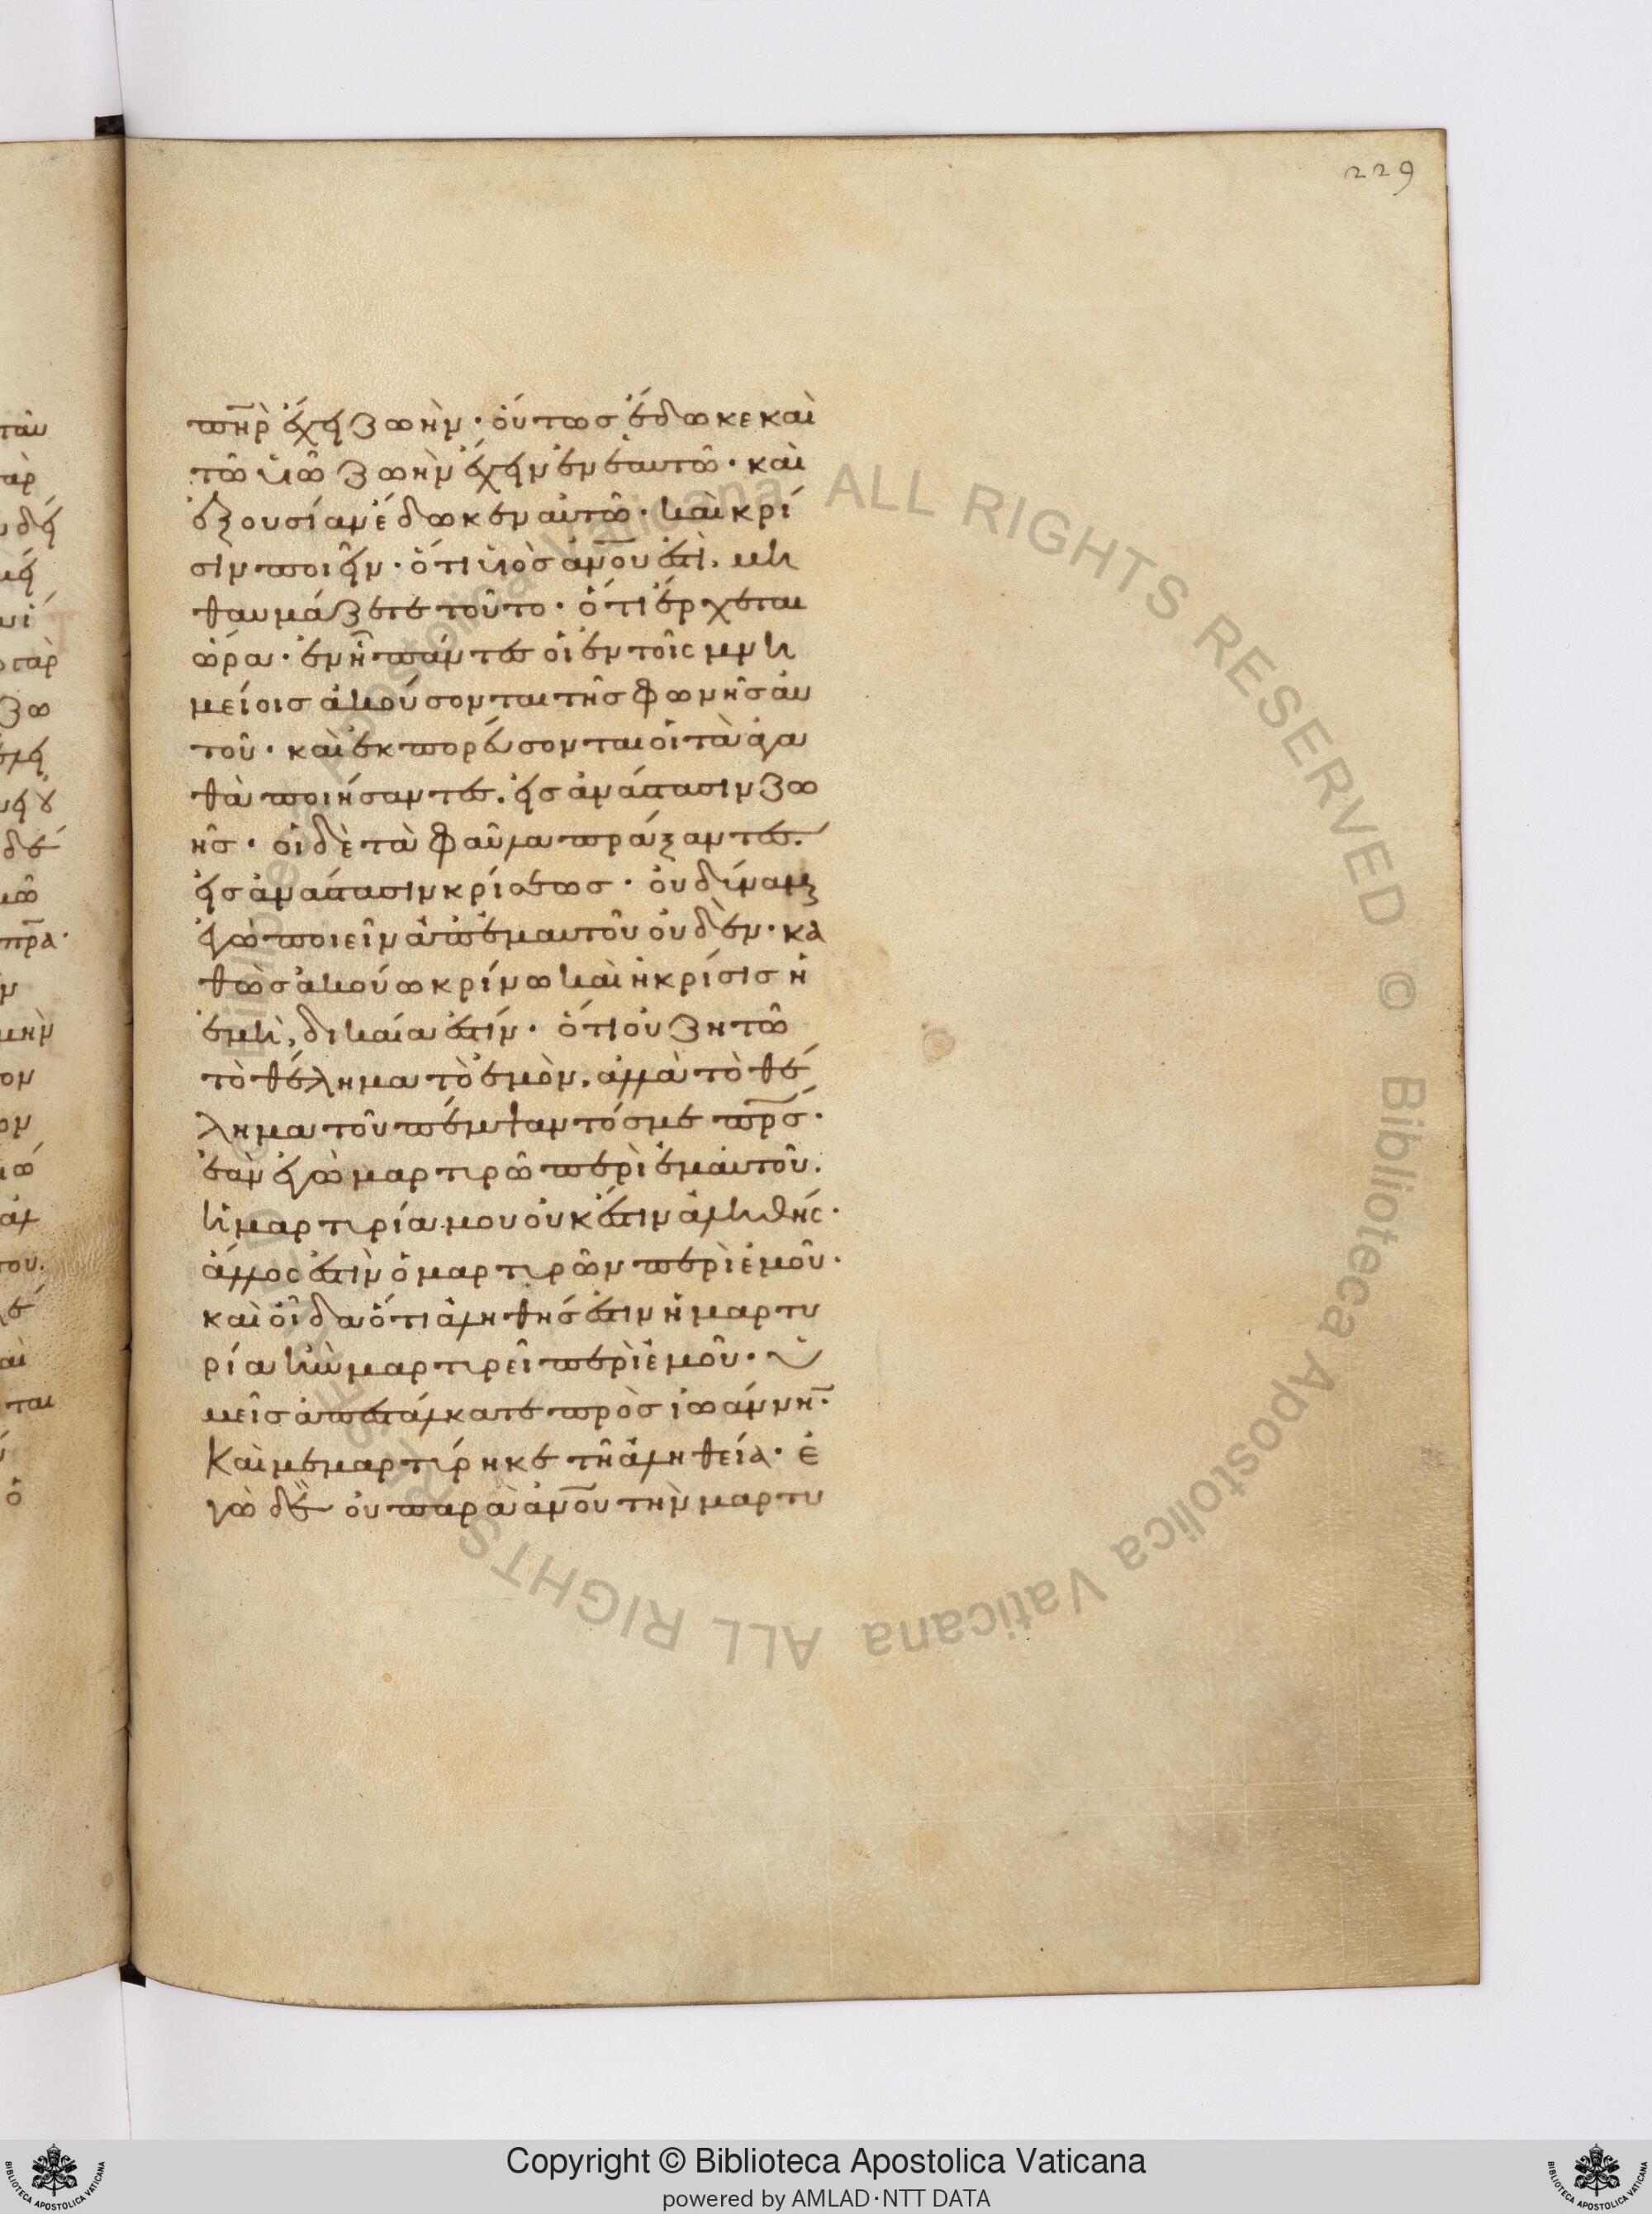 229
πη̅ρ ἔχει ζωὴν· οὕτως ἔδωκε καὶ
τῶ υἱῶ ζωὴν ἔχειν ἐν ἑαυτῶ· καὶ
ἐξουσίαν ἔδωκεν αὐτῶ· καὶ κρί
σιν ποιεῖν· ὅτι υἱὸς ἀν̅ο̅υ ἐστὶ. μὴ
θαυμάζετε τοῦτο· ὅτι ἔρχεται
ὥρα· ἐν ἧ πάντες οἱ ἐν τοῖς μνη
μείοις ἀκούσονται τῆς φωνῆς αὐ
τοῦ· καὶ ἐκπορεύσονται οἱ τὰ ἀγα
θὰ ποιήσαντες. εἰς ἀνάστασιν ζω
ῆς· οἱ δὲ τὰ φαῦλα πράξαντες.
εἰς ἀνάστασιν κρίσεως· οὐ δύναμαι
ἐγὼ ποιεῖν ἀπ' ἐμαυτοῦ οὐδὲν· κα
θὼς ἀκούω κρίνω καὶ ἡ κρίσις ἡ
ἐμὴ, δικαία ἐστίν· ὅτι οὐ ζητῶ
τὸ θέλημα τὸ ἐμὸν, ἀλλὰ τὸ θέ
λημα τοῦ πέμψαντός με πρ̅ς·
ἐὰν ἐγὼ μαρτυρῶ περὶ ἐμαυτοῦ.
ἡ μαρτυρία μου οὐκ ἔστιν ἀληθής·
ἄλλος ἐστὶν ὁ μαρτυρῶν περὶ ἐμοῦ·
καὶ οἶδα ὅτι ἀληθής ἐστιν ἡ μαρτυ
ρία ἣν μαρτυρεῖ περὶ ἐμοῦ· ὑ
μεῖς ἀπεστάλκατε πρὸς ἰωάννη̅·
Καὶ μεμαρτύρηκε τῆ ἀληθεία· ἐ
γὼ δὲ οὐ παρὰ ἀν̅ο̅υ τὴν μαρτυ
ALL RIGHTS RESERVED © Biblioteca Apostolica Vaticana
Copyright © Biblioteca Apostolica Vaticana
powered by AMLAD·NTT DATA
BIBLIOTECA APOSTOLICA VATICANA
BIBLIOTECA APOSTOLICA VATICANA